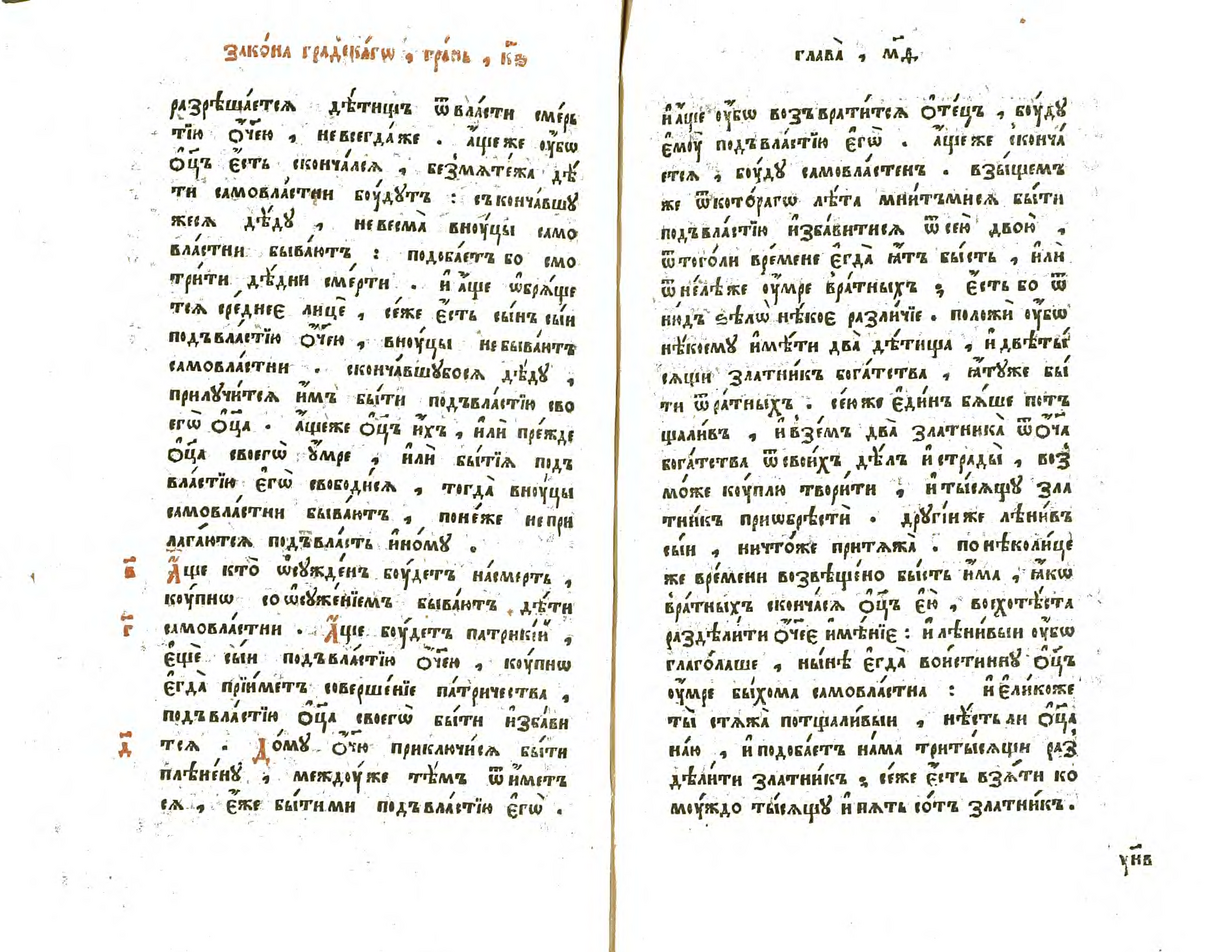 зако́на градска́гѡ , гра́нь , к҃в
разрѣша́етсѧ дѣ́тищъ ѿ вла́сти сме́рь
тїю ѻ҆́ч҃ею , не всегда́ же . а҆́ще же ᲂу҆́бѡ
ѻ҆ц҃ъ є҆́сть сконча́лсѧ , безмѧте́жа дѣ́
ти самовла́стни бꙋ́дꙋтъ : съконча́вшꙋ
жесѧ дѣ́дꙋ , не весма̀ внꙋ́цы само
вла́стни быва́ютъ : подоба́етъ бо смо
три́ти дѣ́дни сме́рти . и҆ а҆́ще ѡ҆брѧ́ще
тсѧ сре́днее лицѐ , се́же є҆́сть сы́нъ сы́и
подъ вла́стїю ѻ҆́ч҃ею , внꙋ́цы не быва́ютъ
самовла́стни . сконча́вшꙋбосѧ дѣ́дꙋ ,
прилꙋчи́тсѧ и҆̀мъ бы́ти подъ вла́стїю сво
егѡ̀ ѻ҆ц҃а̀ . а҆́щеже ѻ҆ц҃ъ и҆́хъ , и҆лѝ пре́жде
ѻ҆ц҃а̀ своегѡ̀ ᲂу҆́мре , и҆лѝ бытїѧ̀ подъ
вла́стїю є҆гѡ̀ свободи́сѧ , тогда̀ внꙋ́цы
самовла́стни быва́ютъ , поне́же не при
лага́ютсѧ подъ вла́сть и҆но́мꙋ .
в҃ А҆́ще кто̀ ѡ҆сꙋжде́нъ бꙋ́детъ на сме́рть ,
кꙋ́пнѡ со ѡ҆сꙋже́нїемъ быва́ютъ дѣ́ти
г҃ самовла́стни . А҆́ще бꙋ́детъ патрикі́и ,
є҆щѐ сы́и подъ вла́стїю ѻ҆́ч҃ею , кꙋ́пнѡ
є҆гда̀ прїи́метъ соверше́нїе па́тричества ,
подъ вла́стїю ѻ҆ц҃а̀ своегѡ̀ бы́ти и҆зба́ви
д҃ тсѧ . До́мꙋ ѻ҆́ч҃ю приключи́сѧ бы́ти
плѣне́нꙋ , междꙋ́же тѣ́мъ ѿи́метъ
сѧ , є҆́же бы́тими подъ вла́стїю є҆гѡ̀ .
глава̀ , м҃д
и҆ а҆́ще ᲂу҆́бѡ возъврати́тсѧ ѻ҆те́цъ , бꙋ́дꙋ
є҆мꙋ̀ подъ вла́стїю є҆гѡ̀ . а҆́ще же сконча́
етсѧ , бꙋ́дꙋ самовла́стенъ . взы́щемъ
же ѿ кото́рагѡ лѣ́та мни́тъмисѧ бы́ти
подъ вла́стїю и҆зба́витисѧ ѿ сею̀ двою̀ ,
ѿ того́ли вре́мене є҆гда̀ ꙗ҆́тъ бы́сть , и҆лѝ
ѿнелѣ́же ᲂу҆́мре вра́тныхъ ; є҆́сть бо ѿ
нюдъ ѕѣлѡ̀ нѣ́кое разли́чїе . положѝ ᲂу҆́бѡ
нѣ́коемꙋ и҆мѣ́ти два̀ дѣ́тища , и҆ двѣ́ ты́
сѧщи зла́тникъ бога́тства , ꙗ҆́тꙋже бы́
ти ѿ ра́тныхъ . се́иже є҆ди́нъ бѧ́ше потъ
ща́ливъ , и҆ взе́мъ два̀ зла́тника ѿ ѻ҆́ч҃а
бога́тства ѿ свои́хъ дѣ́лъ и҆ страды̀ , воз
мо́же кꙋ́плю твори́ти , и҆ ты́сѧщꙋ зла́
тникъ приѡбрѣстѝ . дрꙋгі́иже лѣни́въ
сы́и , ничто́же притѧжа̀ . по нѣколи́цѣ
же вре́мени возвѣще́но бы́сть и҆́ма , ꙗ҆́кѡ
вра́тныхъ сконча́сѧ ѻ҆ц҃ъ є҆ю̀ , восхотѣ́ста
раздѣли́ти ѻ҆́ч҃ее и҆мѣ́нїе : и҆ лѣни́выи ᲂу҆́бѡ
глаго́лаше , ны́нѣ є҆гда̀ вои́стиннꙋ ѻ҆ц҃ъ
ᲂу҆́мре бы́хома самовла́стна : и҆ є҆ли́коже
ты̀ стѧжа̀ потща́ливыи , нѣ́сть ли ѻ҆ц҃а̀
на́ю , и҆ подоба́етъ на́ма три ты́сѧщи раз
дѣли́ти зла́тникъ ; се́же є҆́сть взѧ́ти ко
мꙋ́ждо ты́сѧщꙋ и҆ пѧ́ть со́тъ зла́тникъ .
ун҃в